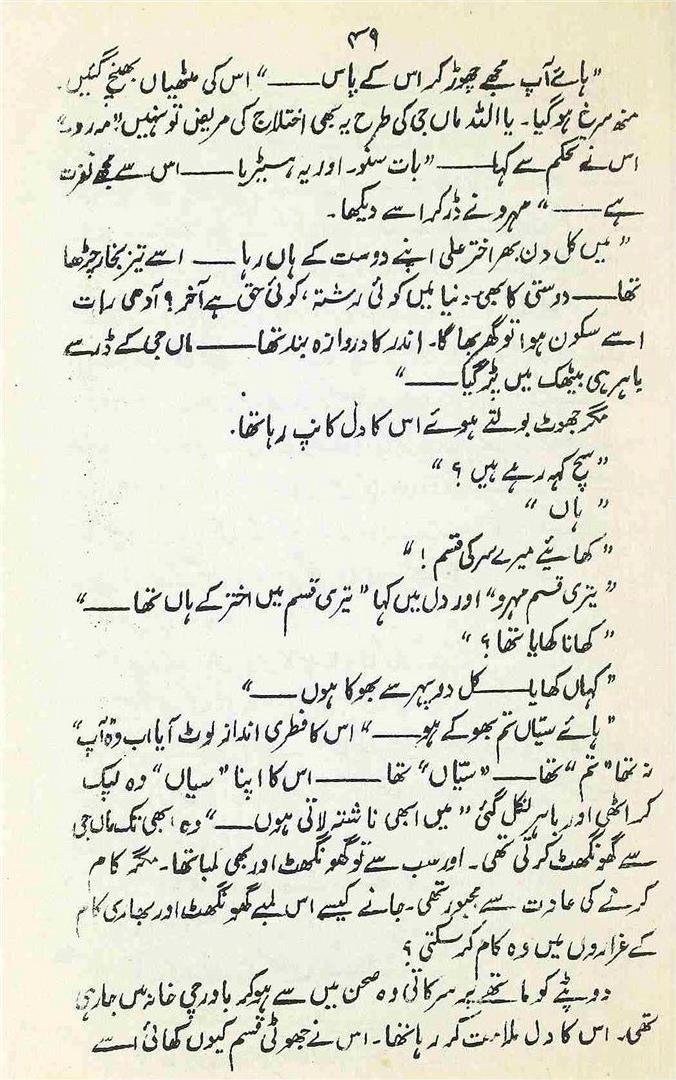 ۴۹
"ہائے آپ مجھے چھوڑ کر اس کے پاس ——" اس کی مٹھیاں بھینچ گئیں۔
منھ سرخ ہو گیا۔ یا اللہ ماں جی کی طرح یہ بھی اختلاج کی مریض تو نہیں "مہرو۔"
اس نے تحکم سے کہا —— "بات سنو۔ اور یہ ہسٹیریا —— اس سے مجھے نفرت
ہے ——" مہرو نے ڈر کر اسے دیکھا۔
"میں کل دن بھر اختر علی اپنے دوست کے ہاں رہا —— اسے تیز بخار چڑھا
تھا —— دوستی کا بھی دنیا میں کوئی رشتہ، کوئی حق ہے آخر؟ آدھی رات
اسے سکون ہوا تو گھر بھاگا۔ اندر کا دروازہ بند تھا —— ماں جی کے ڈر سے
باہر ہی بیٹھک میں پڑ گیا ——"
مگر جھوٹ بولتے ہوئے اس کا دل کانپ رہا تھا۔
"سچ کہہ رہے ہیں؟"
"ہاں"
"کھائیے میرے سر کی قسم!"
"تیری قسم مہرو" اور دل میں کہا "تیری قسم میں اختر کے ہاں تھا ——"
"کھانا کھایا تھا؟"
"کہاں کھایا —— کل دوپہر سے بھوکا ہوں ——"
"ہائے سیّاں تم بھوکے ہو ——" اس کا فطری انداز لوٹ آیا اب وہ "آپ"
نہ تھا "تم" تھا —— "سیّاں" تھا —— اس کا اپنا "سیاں" وہ لپک
کر اٹھی اور باہر نکل گئی "میں ابھی ناشتہ لاتی ہوں ——" وہ ابھی تک ماں جی
سے گھونگھٹ کرتی تھی۔ اور سب سے تو گھونگھٹ اور بھی لمبا تھا۔ مگر کام
کرنے کی عادت سے مجبور تھی۔ جانے کیسے اس لمبے گھونگھٹ اور بھاری کام
کے غراروں میں وہ کام کر سکتی؟
دوپٹے کو ماتھے پر سرکاتی وہ صحن میں سے ہو کر باورچی خانہ میں جا رہی
تھی۔ اس کا دل ملامت کر رہا تھا۔ اس نے جھوٹی قسم کیوں کھائی اسے